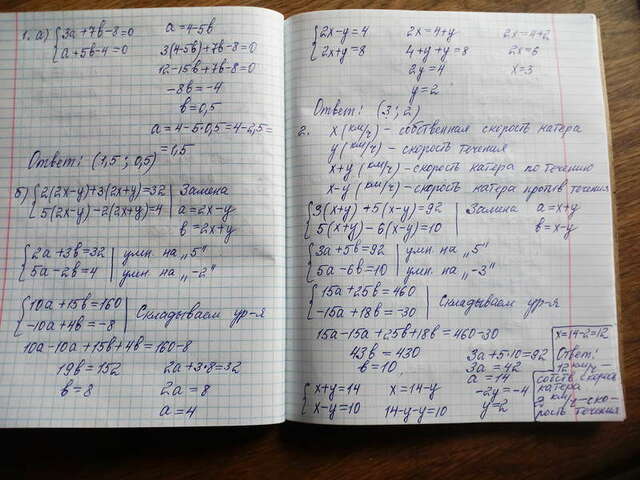 1. а) {3a+7b-8=0     a=4-5b
{a+5b-4=0     3(4-5b)+7b-8=0
12-15b+7b-8=0
-8b=-4
b=0,5
a=4-5·0,5=4-2,5=
=1,5
Ответ: (1,5; 0,5)
б) {2(2x-y)+3(2x+y)=32 | Замена
{5(2x-y)-2(2x+y)=4 | a=2x-y
b=2x+y
{2a+3b=32 | умн. на „5"
{5a-2b=4 | умн. на „-2"
{10a+15b=160 | Складываем ур-я
{-10a+4b=-8
10a-10a+15b+4b=160-8
19b=152     2a+3·8=32
b=8     2a=8
a=4
{2x-y=4     2x=4+y     2x=4+2
{2x+y=8     4+y+y=8     2x=6
2y=4     x=3
y=2
Ответ: (3; 2)
2. x (км/ч) - собственная скорость катера
y (км/ч) - скорость течения
x+y (км/ч) - скорость катера по течению
x-y (км/ч) - скорость катера против течения
{3(x+y)+5(x-y)=92 | Замена a=x+y
{5(x+y)-6(x-y)=10 | b=x-y
{3a+5b=92 | умн. на „5"
{5a-6b=10 | умн. на „-3"
{15a+25b=460 | Складываем ур-я
{-15a+18b=-30
15a-15a+25b+18b=460-30
43b=430     3a+5·10=92
b=10     3a=42
a=14
{x+y=14     x=14-y     -2y=-4
{x-y=10     14-y-y=10     y=2
x=14-2=12
Ответ:
12 км/ч -
собств. скорость
катера
2 км/ч - ско-
рость течения